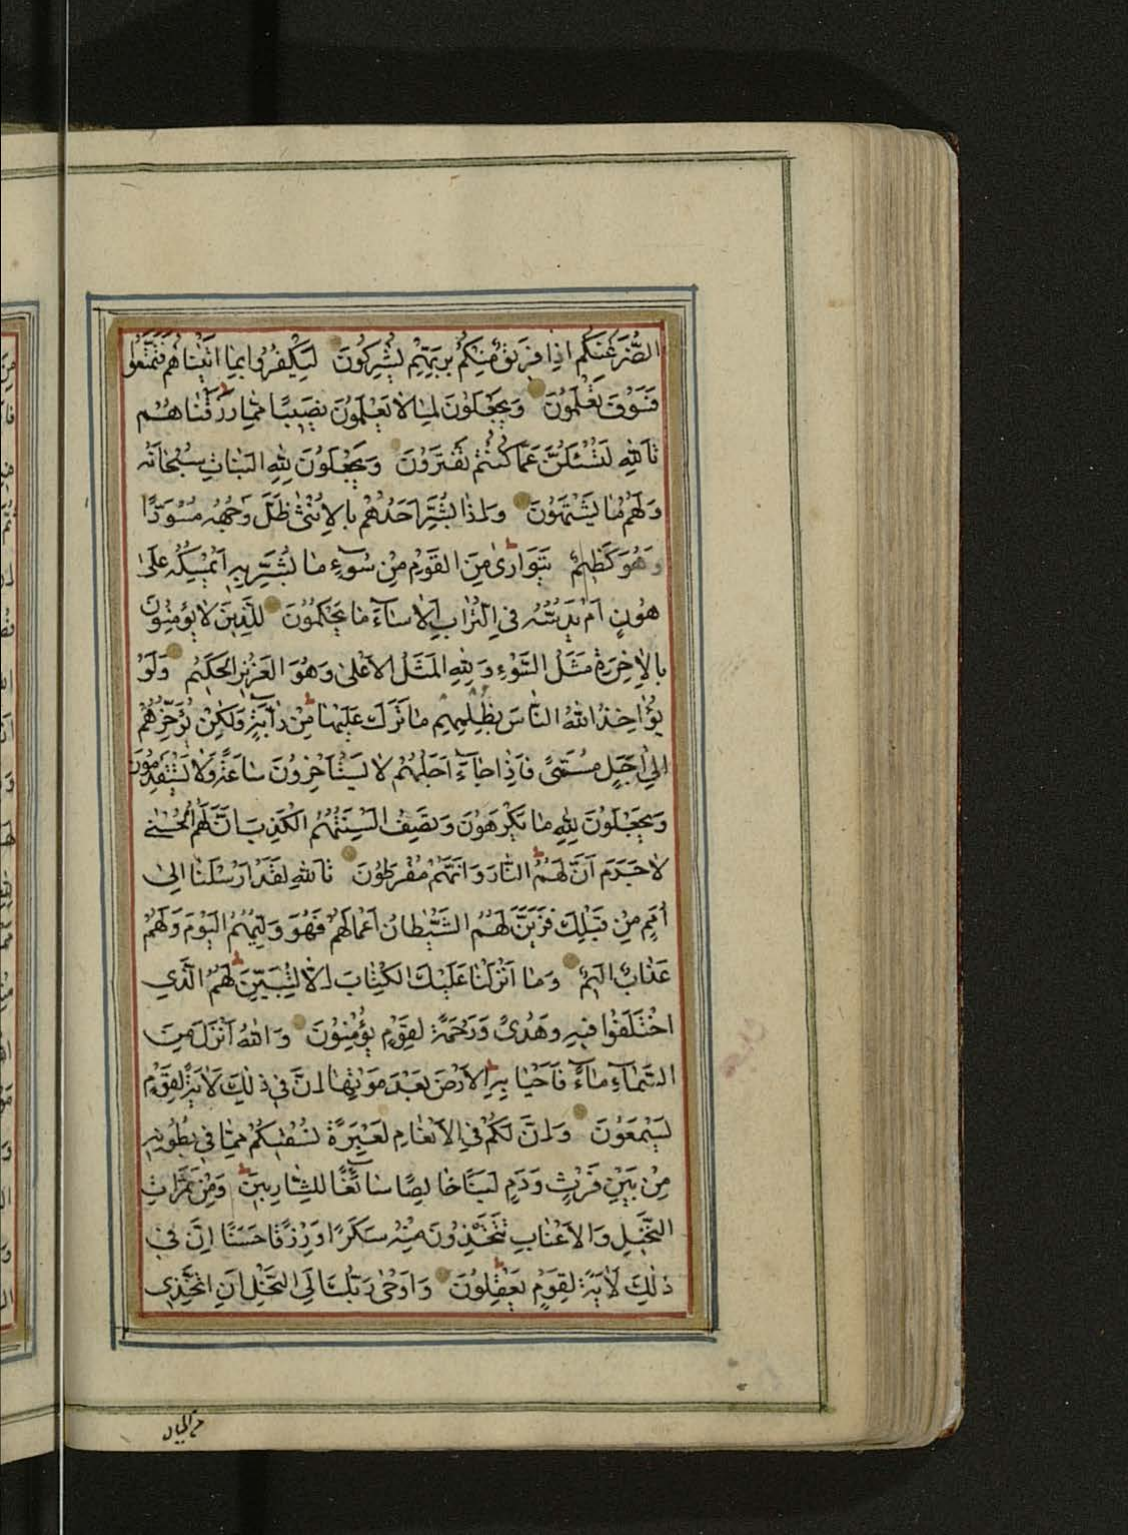 الضُّرَّ عَنْكُم اِذَا فَرِيقٌ مِنْكُمْ بِرَبِّهِمْ يُشْرِكُونَ لِيَكْفُرُوا بِمَا اٰتَيْنَاهُمْ فَتَمَتَّعُوا
فَسَوْفَ تَعْلَمُونَ وَيَجْعَلُونَ لِمَا لَا يَعْلَمُونَ نَصِيبًا مِمَّا رَزَقْنَاهُمْ
تَاللّٰهِ لَتُسْئَلُنَّ عَمَّا كُنْتُمْ تَفْتَرُونَ وَيَجْعَلُونَ لِلّٰهِ الْبَنَاتِ سُبْحَانَهُ
وَلَهُمْ مَا يَشْتَهُونَ وَاِذَا بُشِّرَ اَحَدُهُمْ بِالْاُنْثٰى ظَلَّ وَجْهُهُ مُسْوَدًّا
وَهُوَ كَظِيمٌ يَتَوَارٰى مِنَ الْقَوْمِ مِنْ سُوۤءِ مَا بُشِّرَ بِهِ اَيُمْسِكُهُ عَلٰى
هُونٍ اَمْ يَدُسُّهُ فِي التُّرَابِ اَلَا سَاۤءَ مَا يَحْكُمُونَ لِلَّذِينَ لَا يُؤْمِنُونَ
بِالْاٰخِرَةِ مَثَلُ السَّوْءِ وَلِلّٰهِ الْمَثَلُ الْاَعْلٰى وَهُوَ الْعَزِيزُ الْحَكِيمُ وَلَوْ
يُؤَاخِذُ اللّٰهُ النَّاسَ بِظُلْمِهِمْ مَا تَرَكَ عَلَيْهَا مِنْ دَاۤبَّةٍ وَلٰكِنْ يُؤَخِّرُهُمْ
اِلٰى اَجَلٍ مُسَمًّى فَاِذَا جَاۤءَ اَجَلُهُمْ لَا يَسْتَأْخِرُونَ سَاعَةً وَلَا يَسْتَقْدِمُونَ
وَيَجْعَلُونَ لِلّٰهِ مَا يَكْرَهُونَ وَتَصِفُ اَلْسِنَتُهُمُ الْكَذِبَ اَنَّ لَهُمُ الْحُسْنٰى
لَا جَرَمَ اَنَّ لَهُمُ النَّارَ وَاَنَّهُمْ مُفْرَطُونَ تَاللّٰهِ لَقَدْ اَرْسَلْنَا اِلٰى
اُمَمٍ مِنْ قَبْلِكَ فَزَيَّنَ لَهُمُ الشَّيْطَانُ اَعْمَالَهُمْ فَهُوَ وَلِيُّهُمُ الْيَوْمَ وَلَهُمْ
عَذَابٌ اَلِيمٌ وَمَا اَنْزَلْنَا عَلَيْكَ الْكِتَابَ اِلَّا لِتُبَيِّنَ لَهُمُ الَّذِي
اخْتَلَفُوا فِيهِ وَهُدًى وَرَحْمَةً لِقَوْمٍ يُؤْمِنُونَ وَاللّٰهُ اَنْزَلَ مِنَ
السَّمَاۤءِ مَاۤءً فَاَحْيَا بِهِ الْاَرْضَ بَعْدَ مَوْتِهَا اِنَّ فِي ذٰلِكَ لَاٰيَةً لِقَوْمٍ
يَسْمَعُونَ وَاِنَّ لَكُمْ فِي الْاَنْعَامِ لَعِبْرَةً نُسْقِيكُمْ مِمَّا فِي بُطُونِهِ
مِنْ بَيْنِ فَرْثٍ وَدَمٍ لَبَنًا خَالِصًا سَاۤئِغًا لِلشَّارِبِينَ وَمِنْ ثَمَرَاتِ
النَّخِيلِ وَالْاَعْنَابِ تَتَّخِذُونَ مِنْهُ سَكَرًا وَرِزْقًا حَسَنًا اِنَّ فِي
ذٰلِكَ لَاٰيَةً لِقَوْمٍ يَعْقِلُونَ وَاَوْحٰى رَبُّكَ اِلَى النَّحْلِ اَنِ اتَّخِذِي
من الجبال